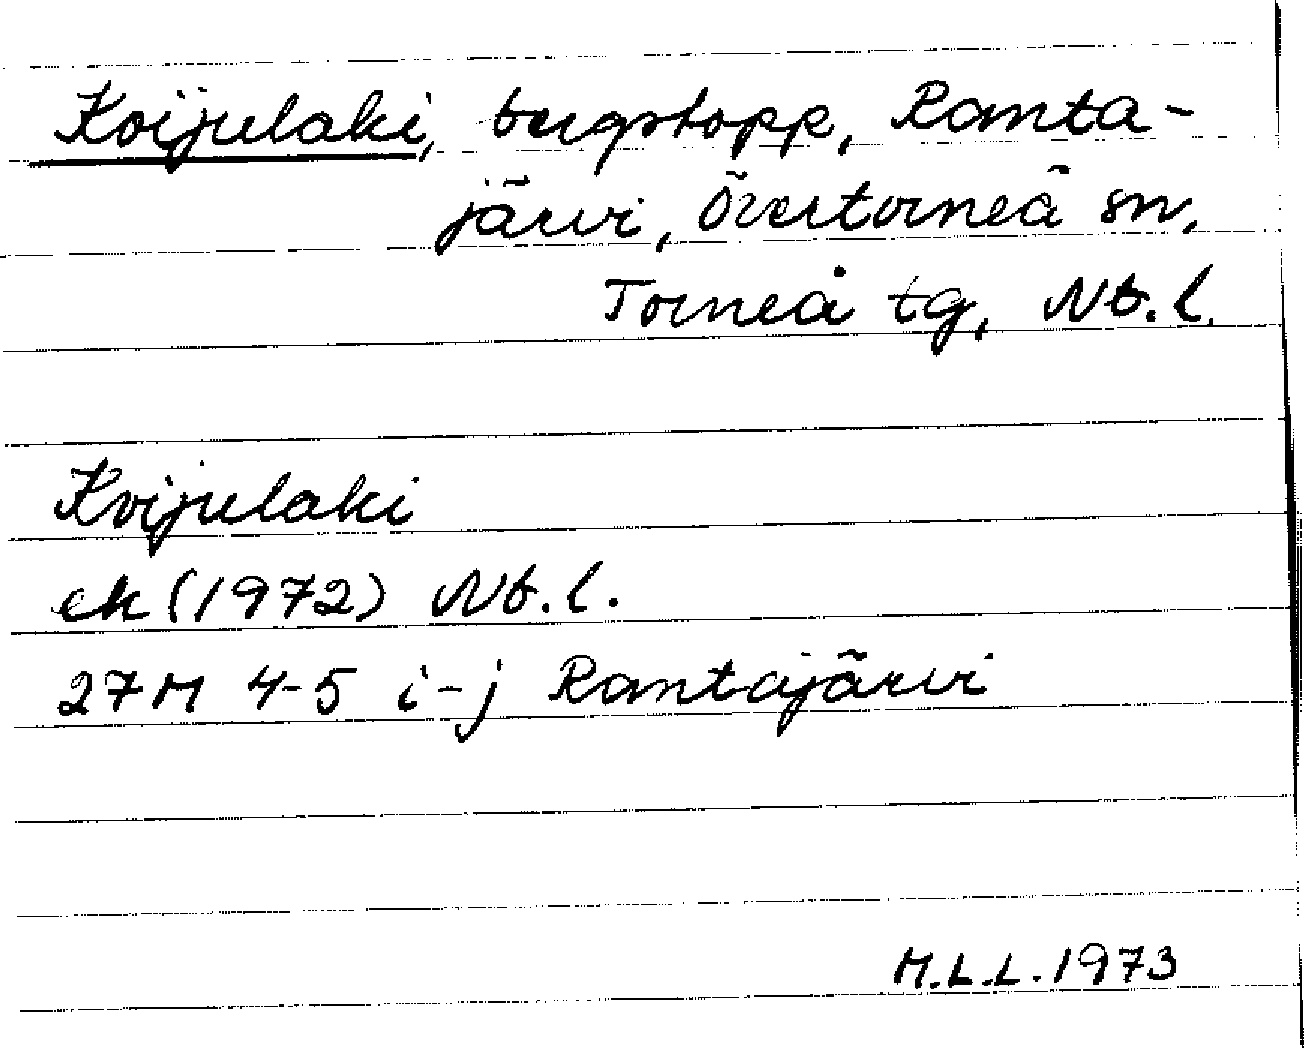 Koijulaki, bergstopp, Ranta-
järvi, Övertorneå sn,
Torneå tg, Nb.l.
Koijulaki
ek (1972) Nb.l.
27M 4-5 i-j Rantajärvi
M.L.L. 1973